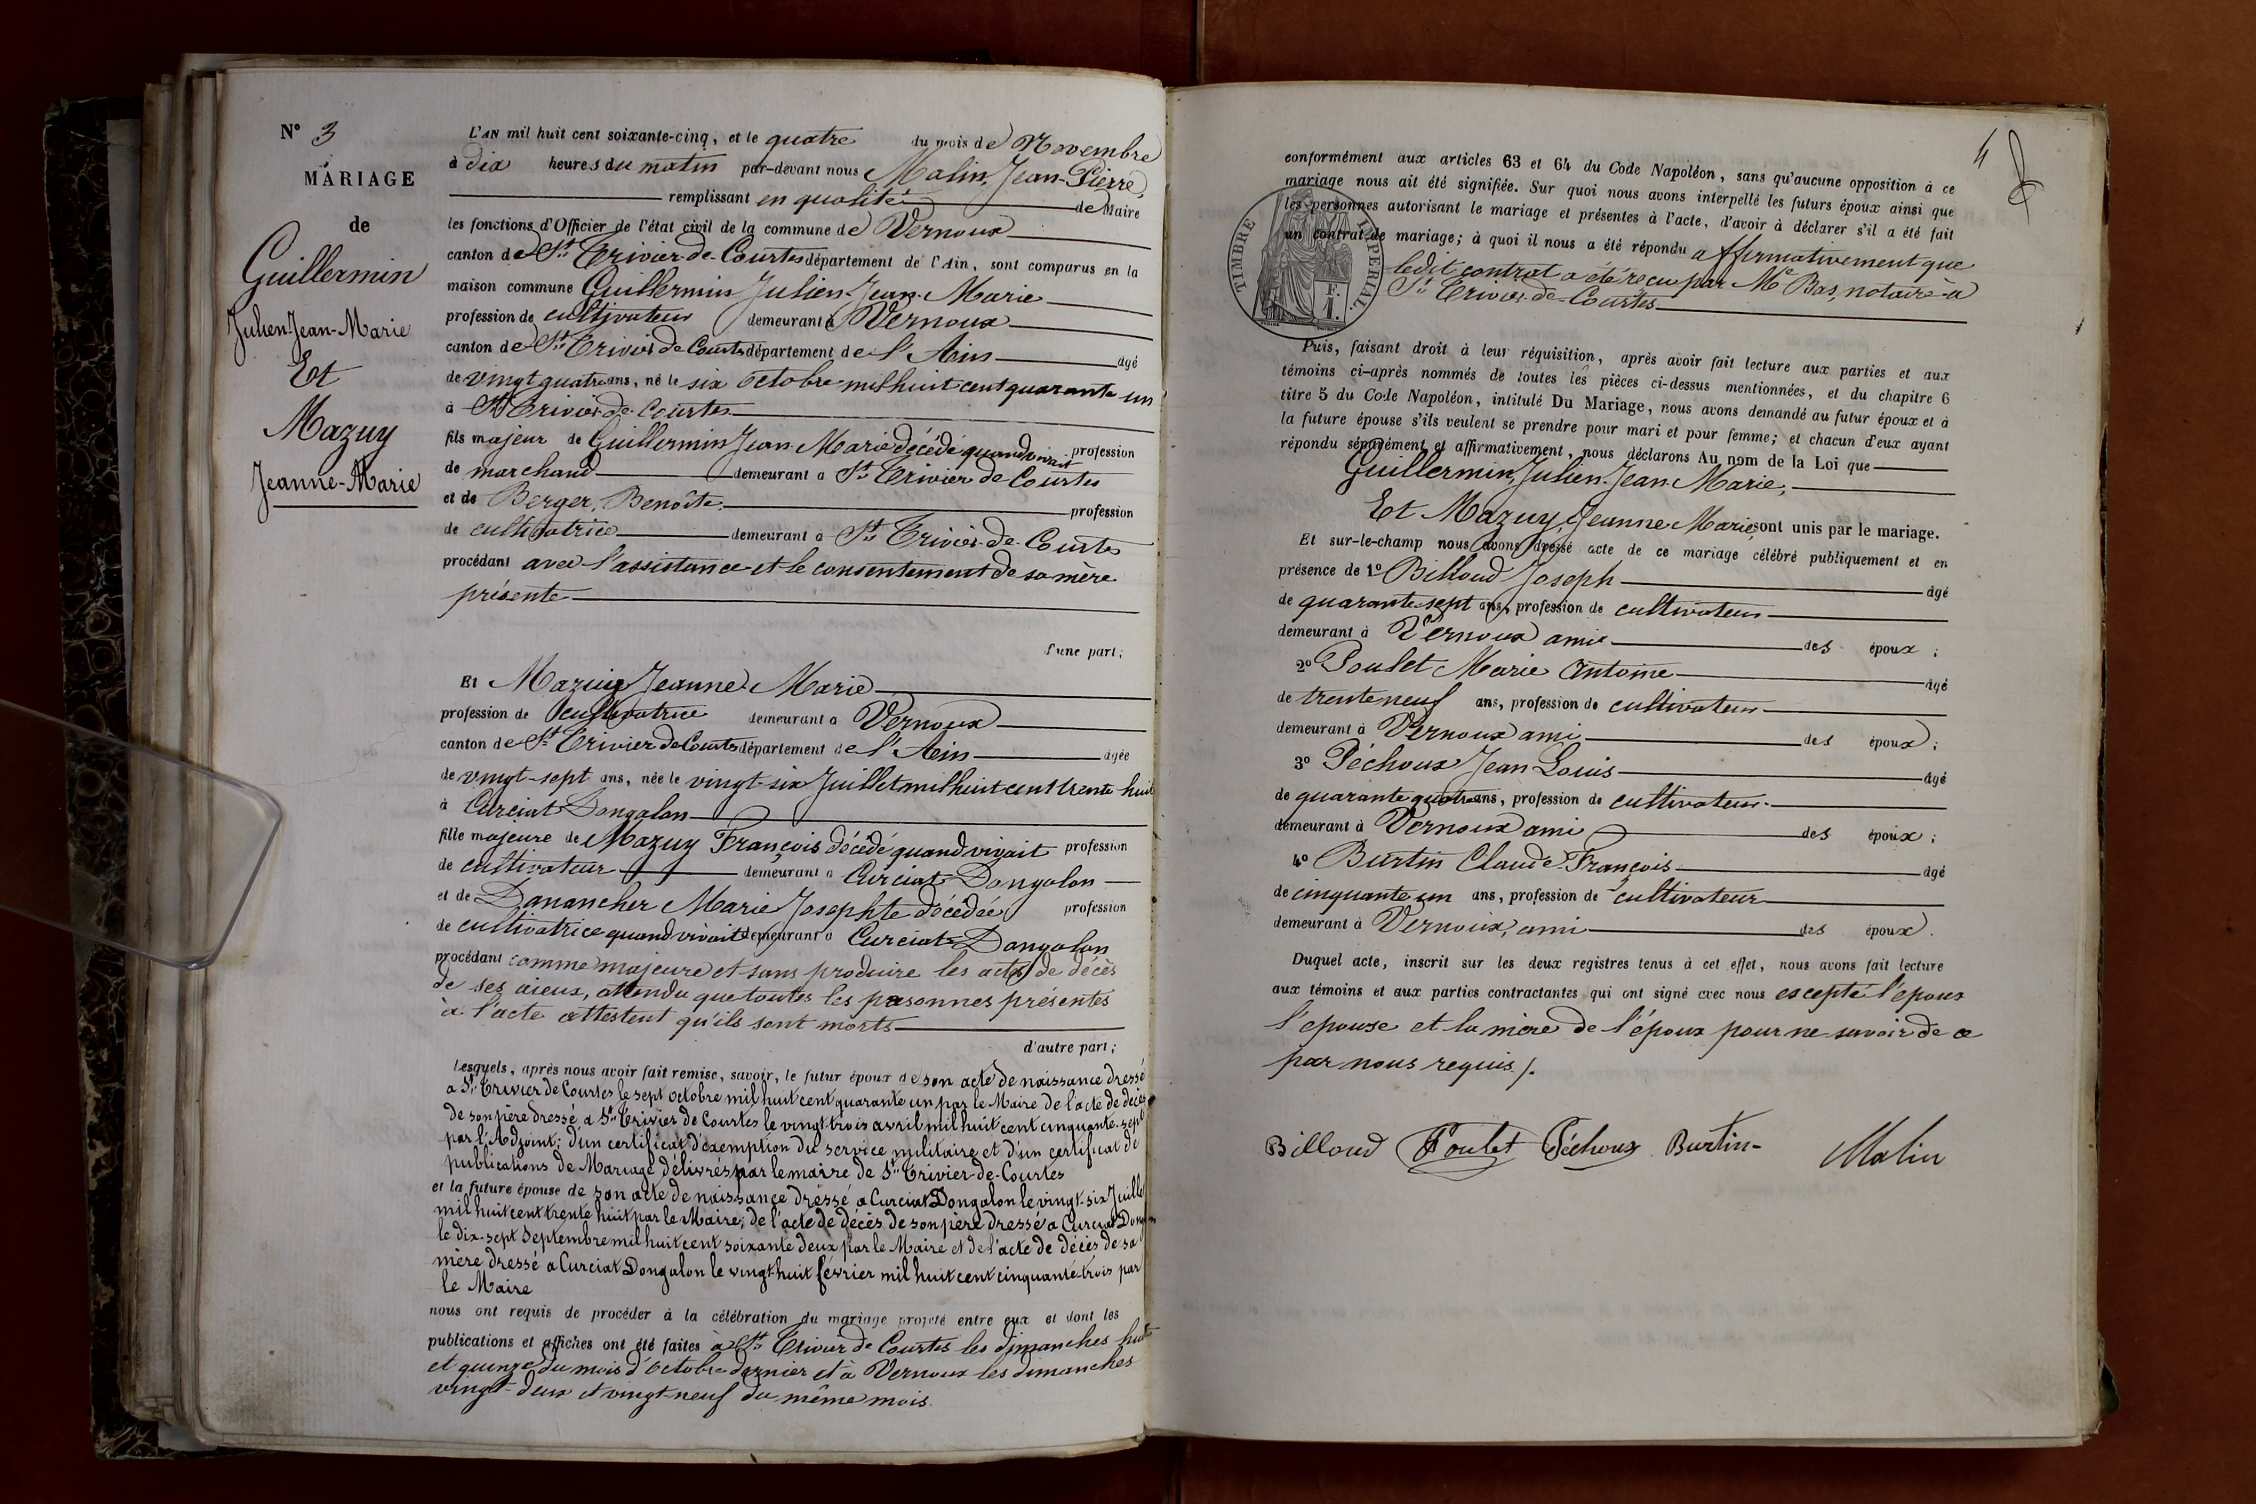 N° 3
MARIAGE
de
Guillermin
Julien-Jean-Marie
Et
Mazuy
Jeanne-Marie
L'AN mil huit cent soixante-cinq, et le quatre du mois de Novembre
à dix heures du matin par-devant nous Malin, Jean-Pierre,
remplissant en qualité de Maire
les fonctions d'Officier de l'état civil de la commune de Vernoux
canton de St Trivier-de-Courtes département de l'Ain, sont comparus en la
maison commune Guillermin Julien-Jean-Marie
profession de cultivateur demeurant à Vernoux
canton de St Trivier de Courtes département de l'Ain âgé
de vingt quatre ans, né le six Octobre mil huit cent quarante un
à St Trivier-de-Courtes
fils majeur de Guillermin Jean-Marie décédé quand vivait profession
de marchand demeurant à St Trivier de Courtes
et de Berger, Benoîte profession
de cultivatrice demeurant à St Trivier-de-Courtes
procédant avec l'assistance et le consentement de sa mère
présente
d'une part;
Et Mazuy Jeanne Marie
profession de cultivatrice demeurant à Vernoux
canton de St Trivier de Courtes département de l'Ain âgée
de vingt-sept ans, née le vingt-six Juillet mil huit cent trente huit
à Curciat Dongalon
fille majeure de Mazuy François décédé quand vivait profession
de cultivateur demeurant à Curciat Dongalon
et de Danancher Marie Josephte décédée profession
de cultivatrice quand vivait demeurant à Curciat-Dongalon
procédant comme majeure et sans produire les actes de décès
de ses aieux, attendu que toutes les personnes présentes
à l'acte attestent qu'ils sont morts
d'autre part;
Lesquels, après nous avoir fait remise, savoir, le futur époux de son acte de naissance dressé
a St Trivier de Courtes le sept octobre mil huit cent quarante un par le Maire de l'acte de décès
de son père dressé à St Trivier de Courtes le vingt trois avril mil huit cent cinquante-sept
par l'Adjoint; d'un certificat d'exemption du service militaire et d'un certificat de
publications de Mariage délivrés par le maire de St Trivier-de-Courtes
et la future épouse de son acte de naissance dressé a Curciat Dongalon le vingt-six Juillet
mil huit cent trente huit par le Maire; de l'acte de décès de son père dressé a Curciat Dongalon
le dix-sept Septembre mil huit cent soixante deux par le Maire et de l'acte de décès de sa
mère dressé a Curciat Dongalon le vingt-huit février mil huit cent cinquante-trois par
le Maire
nous ont requis de procéder à la célébration du mariage projeté entre eux et dont les
publications et affiches ont été faites à St Trivier de Courtes les dimanches huit
et quinze du mois d'Octobre dernier et à Vernoux les dimanches
vingt-deux et vingt-neuf du même mois.
4
conformément aux articles 63 et 64 du Code Napoléon, sans qu'aucune opposition à ce
mariage nous ait été signifiée. Sur quoi nous avons interpellé les futurs époux ainsi que
les personnes autorisant le mariage et présentes à l'acte, d'avoir à déclarer s'il a été fait
un contrat de mariage; à quoi il nous a été répondu affirmativement que
ledit contrat a été reçu par Me Bas, notaire à
St Trivier-de-Courtes
TIMBRE IMPÉRIAL.
F.
1.
Puis, faisant droit à leur réquisition, après avoir fait lecture aux parties et aux
témoins ci-après nommés de toutes les pièces ci-dessus mentionnées, et du chapitre 6
titre 5 du Code Napoléon, intitulé Du Mariage, nous avons demandé au futur époux et à
la future épouse s'ils veulent se prendre pour mari et pour femme; et chacun d'eux ayant
répondu séparément et affirmativement, nous déclarons Au nom de la Loi que
Guillermin, Julien-Jean-Marie,
Et Mazuy, Jeanne Marie, sont unis par le mariage.
Et sur-le-champ nous avons dressé acte de ce mariage célébré publiquement et en
présence de 1° Billoud Joseph âgé
de quarante-sept ans, profession de cultivateur
demeurant à Vernoux ami des époux;
2° Poulet Marie Antoine âgé
de trente neuf ans, profession de cultivateur
demeurant à Vernoux ami des époux;
3° Péchoux Jean Louis âgé
de quarante quatre ans, profession de cultivateur
demeurant à Vernoux ami des époux;
4° Burtin Claude-François âgé
de cinquante un ans, profession de cultivateur
demeurant à Vernoux, ami des époux.
Duquel acte, inscrit sur les deux registres tenus à cet effet, nous avons fait lecture
aux témoins et aux parties contractantes qui ont signé avec nous excepté l'epoux
l'epouse et la mère de l'époux pour ne savoir de ce
par nous requis /.
Billoud Poulet Péchoux Burtin Malin